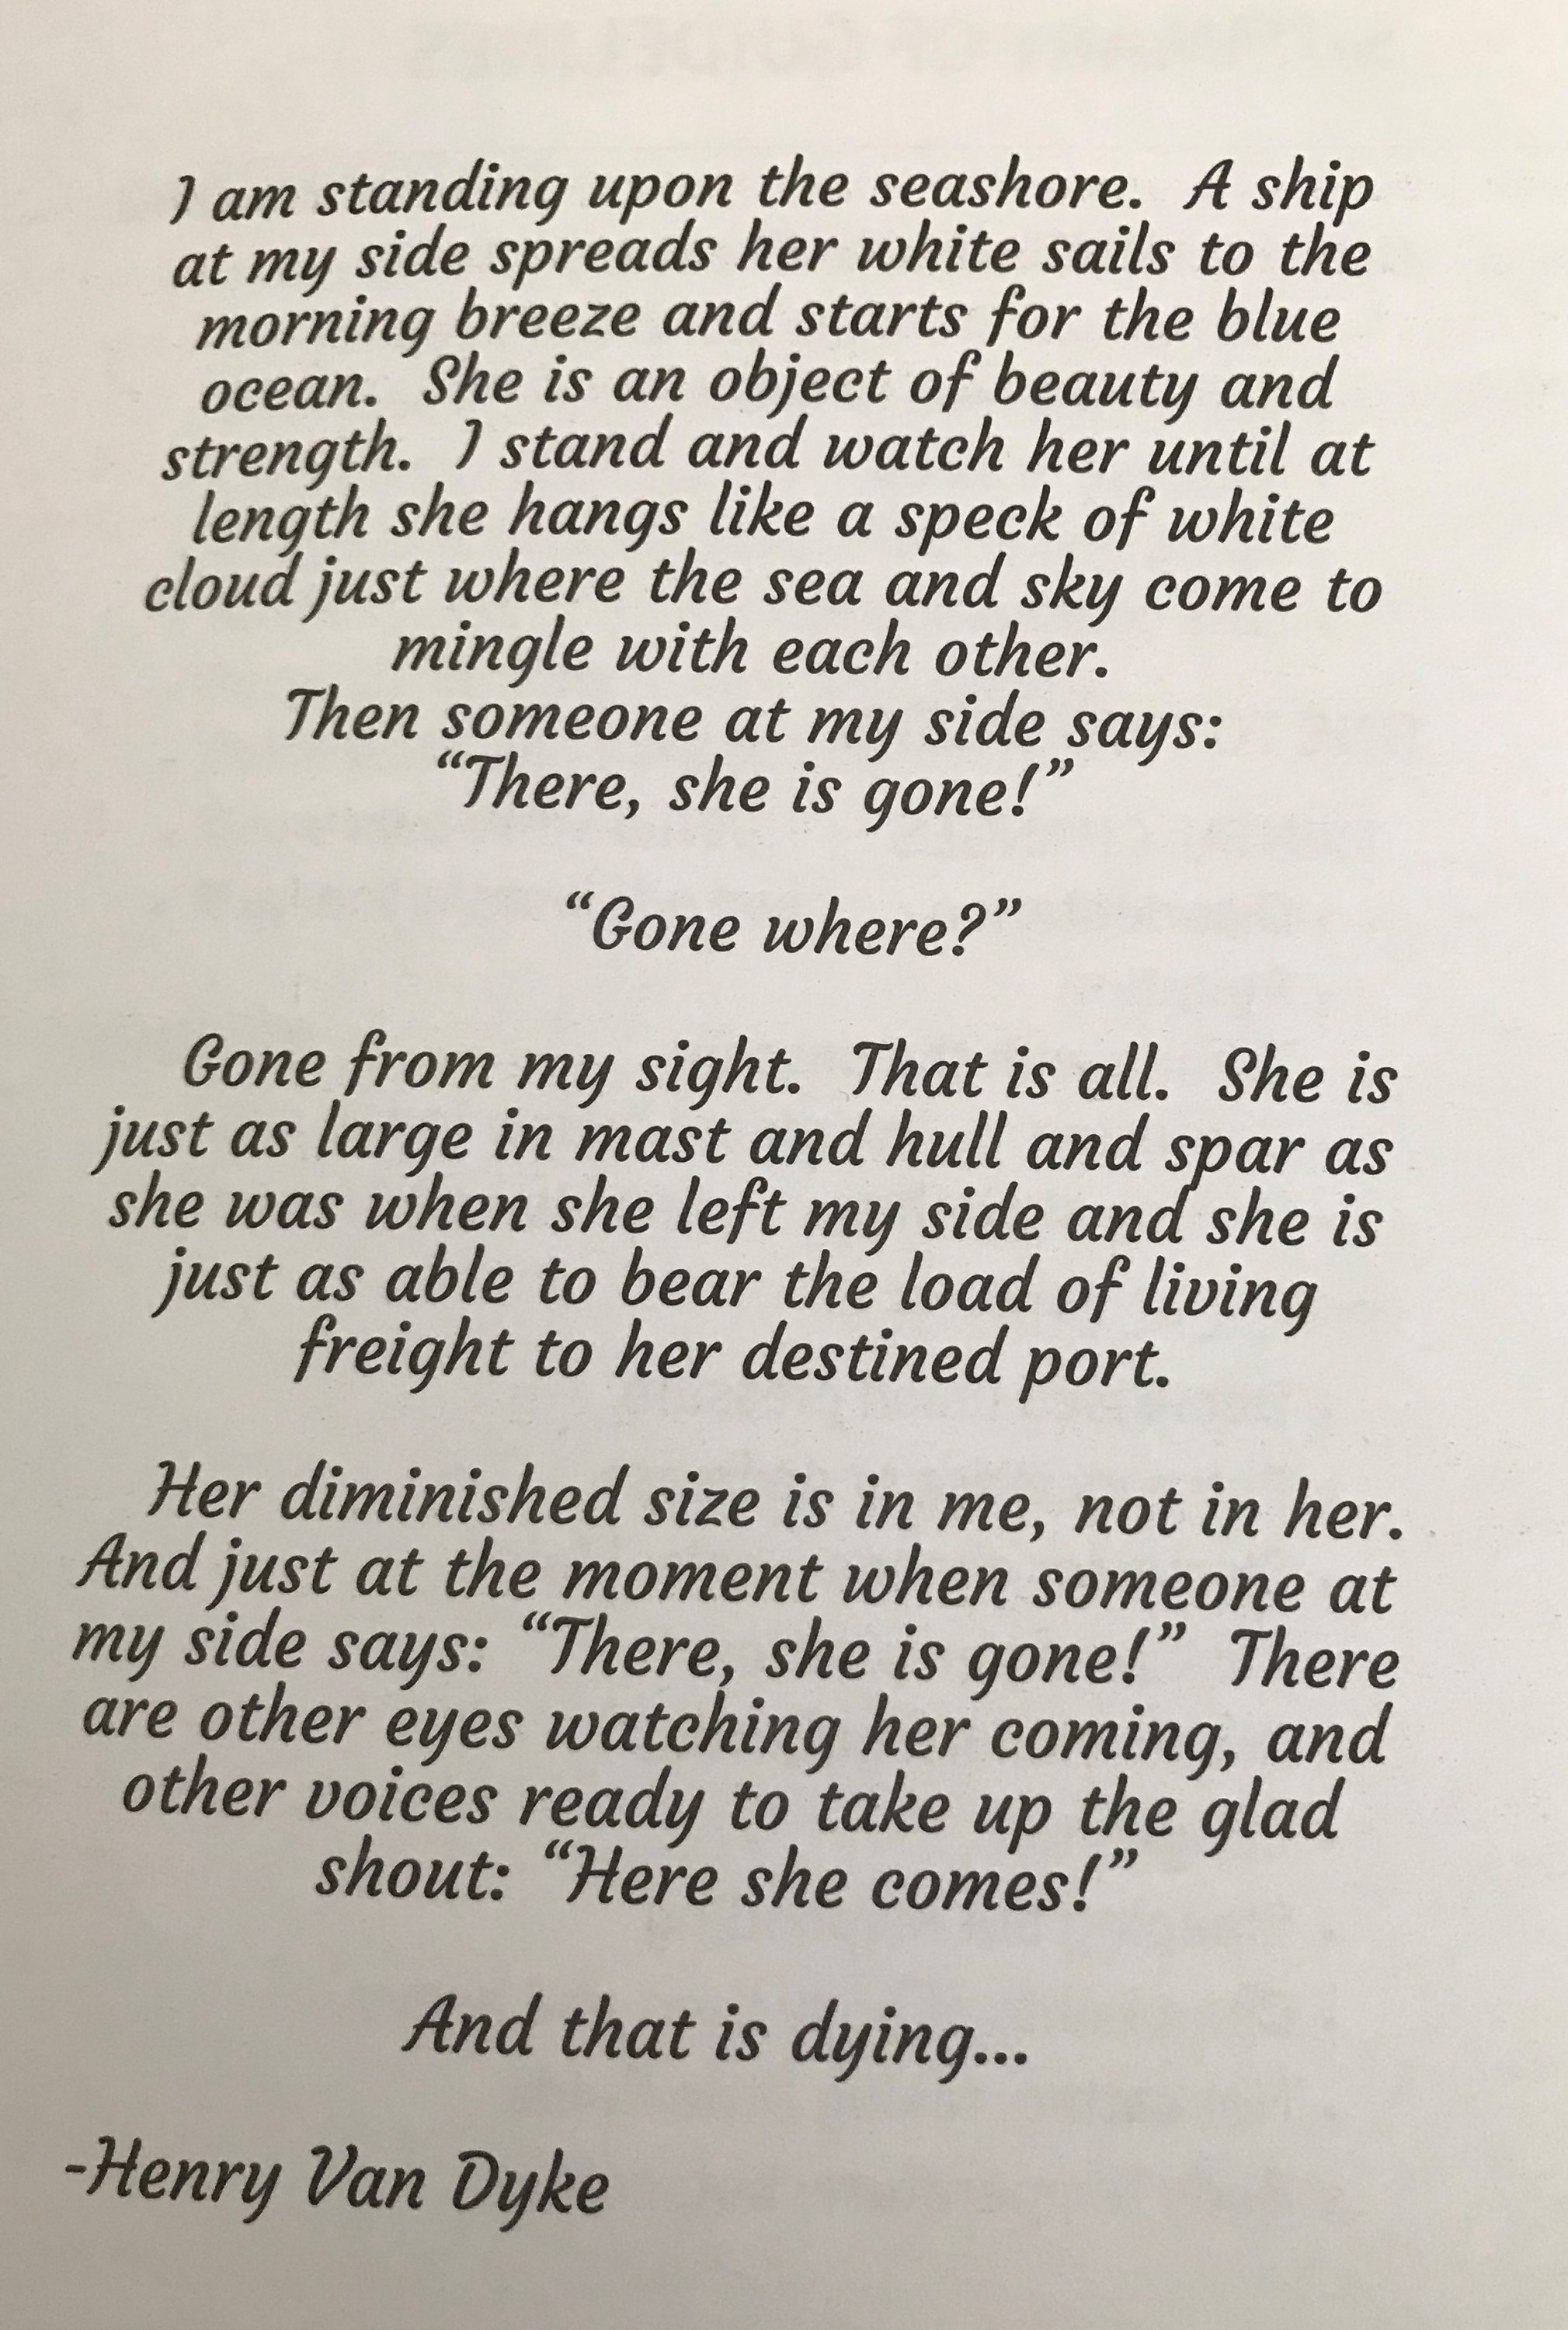 I am standing upon the seashore.  A ship
at my side spreads her white sails to the
morning breeze and starts for the blue
ocean.  She is an object of beauty and
strength.  I stand and watch her until at
length she hangs like a speck of white
cloud just where the sea and sky come to
mingle with each other.
Then someone at my side says:
“There, she is gone!”
“Gone where?”
Gone from my sight.  That is all.  She is
just as large in mast and hull and spar as
she was when she left my side and she is
just as able to bear the load of living
freight to her destined port.
Her diminished size is in me, not in her.
And just at the moment when someone at
my side says: “There, she is gone!”  There
are other eyes watching her coming, and
other voices ready to take up the glad
shout: “Here she comes!”
And that is dying...
-Henry Van Dyke